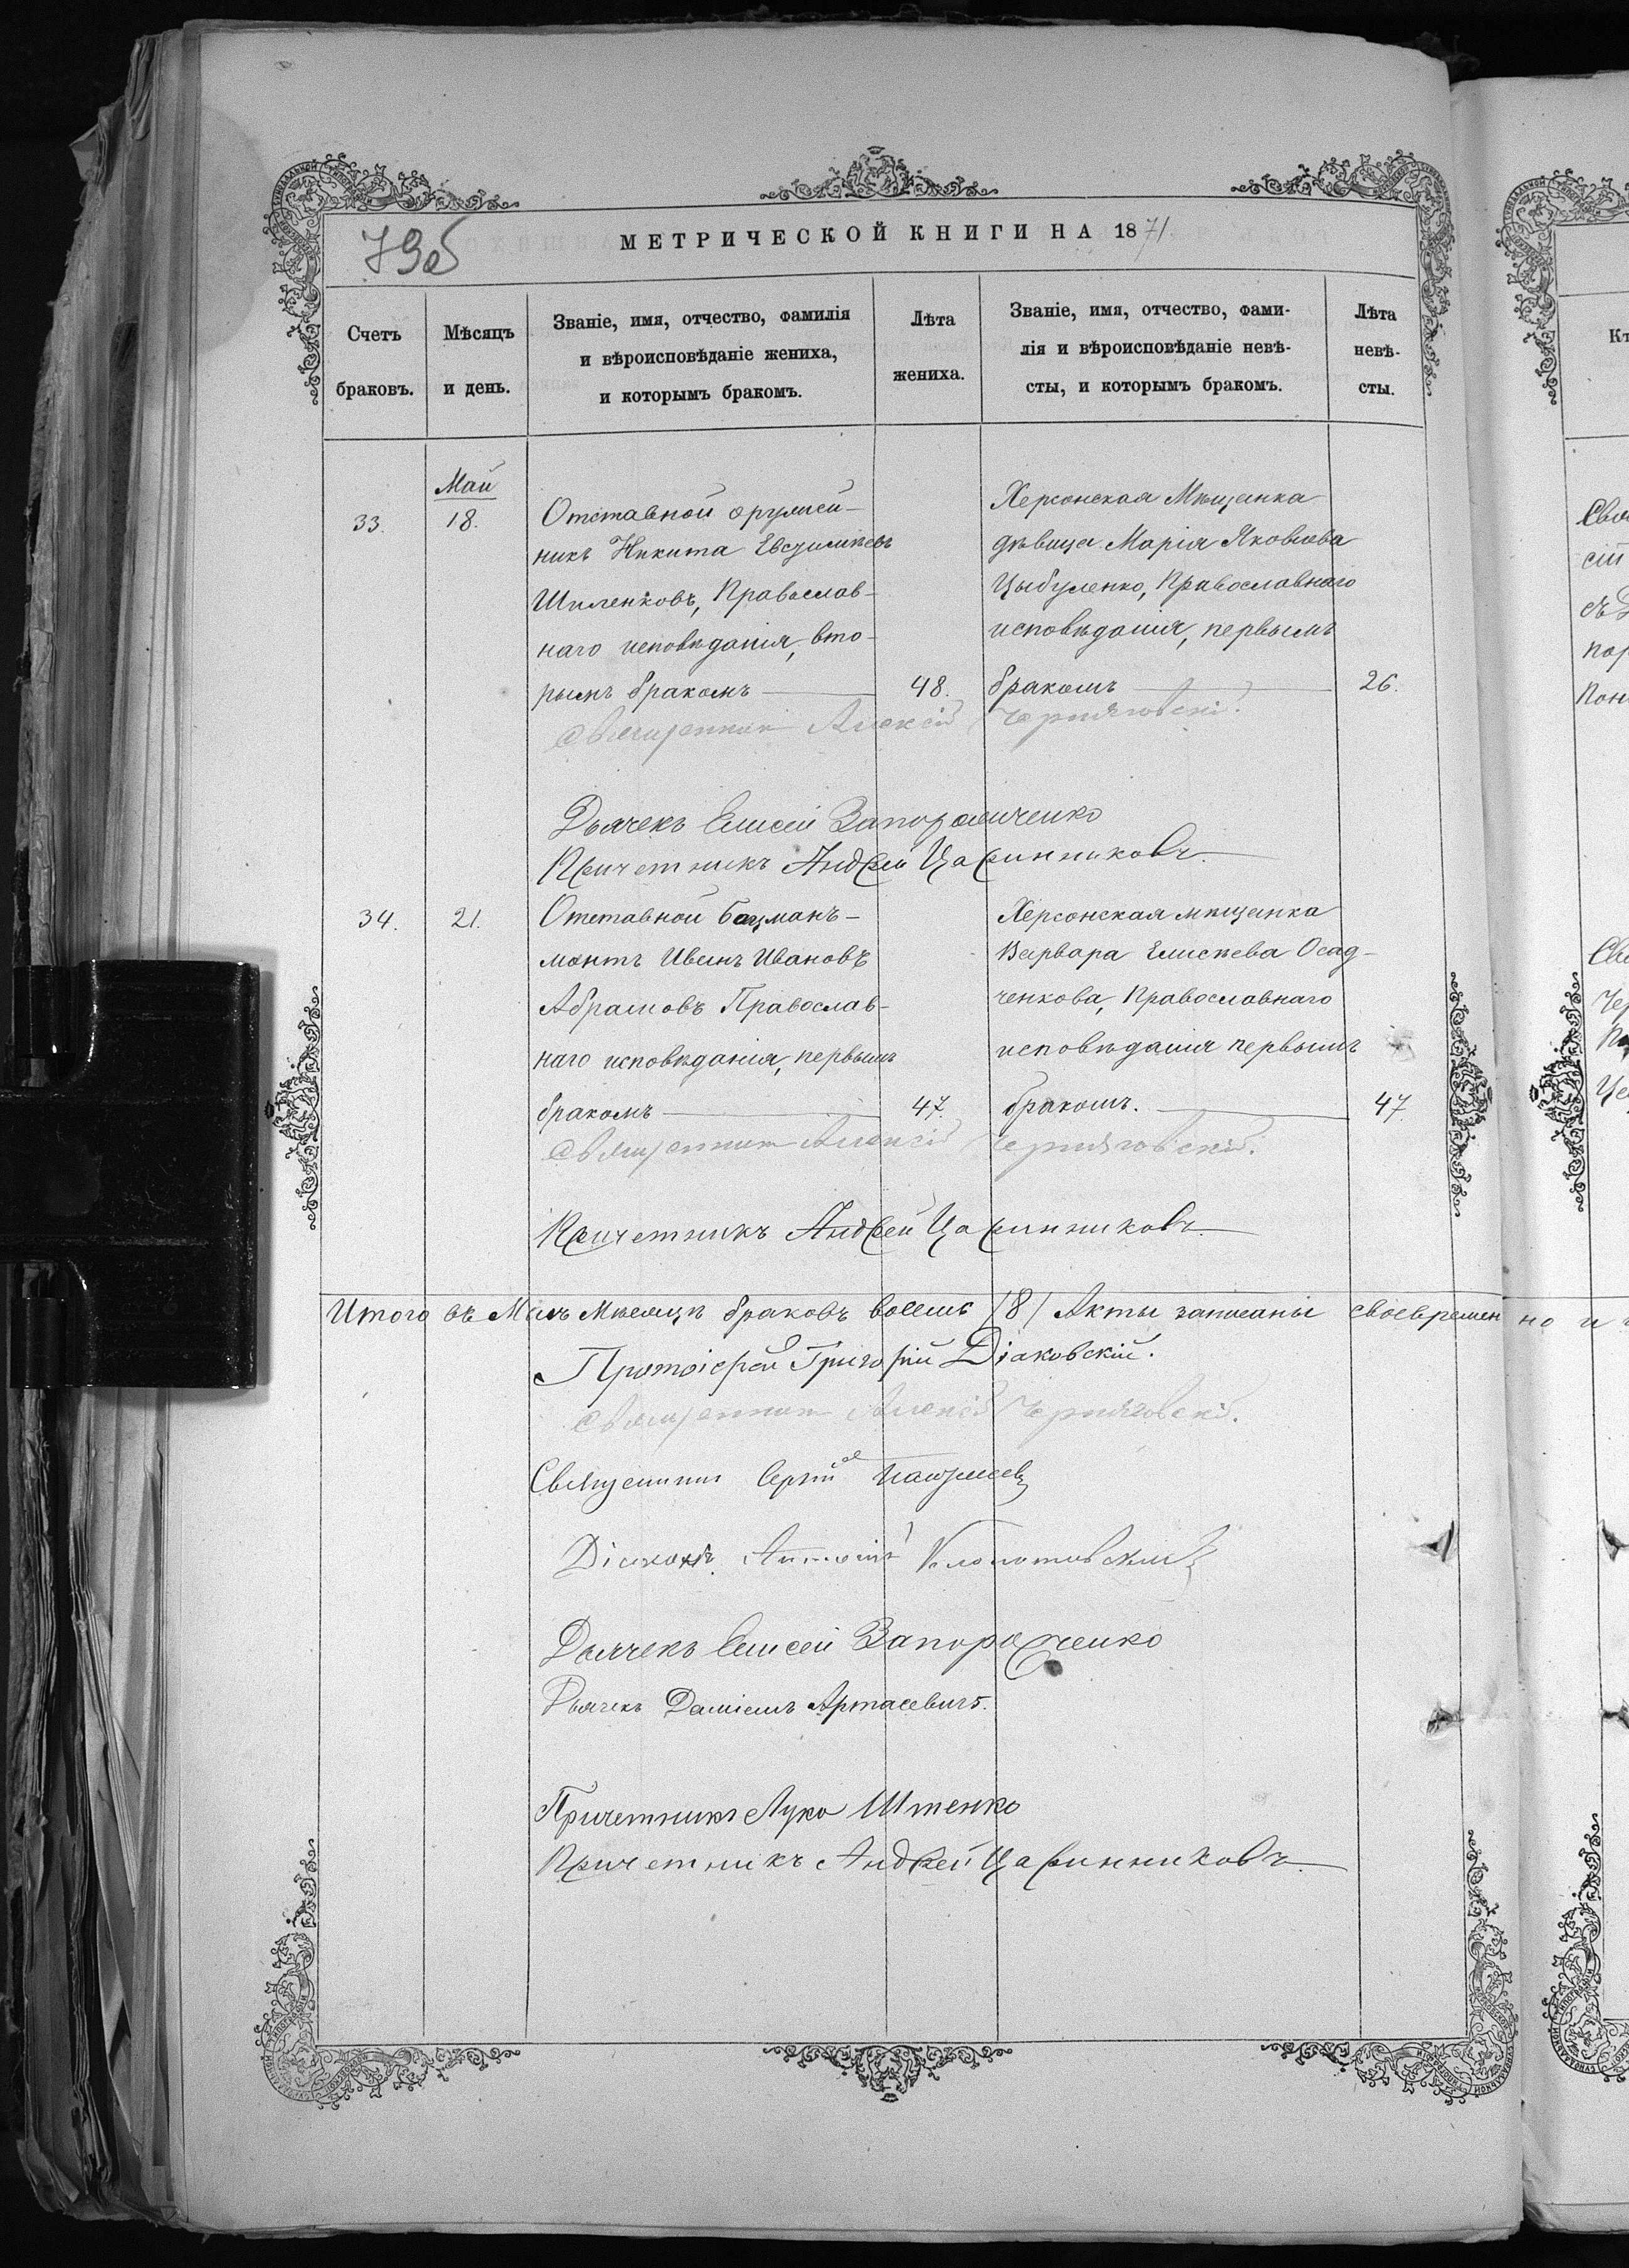 МЕТРИЧЕСКОЙ КНИГИ НА 1871
79об
Счетъ браковъ.
Мѣсяцъ и день.
Званіе, имя, отчество, фамилія
и вѣроисповѣданіе жениха,
и которымъ бракомъ.
Лѣта жениха.
Званіе, имя, отчество, фами-
лія и вѣроисповѣданіе невѣ-
сты, и которымъ бракомъ.
Лѣта невѣ-
сты.
Май
33. 18.
Отставной оружей-
никъ Никита
Шиленковъ, Православ-
наго исповѣданія, вто-
рымъ бракомъ 48.
Херсонская Мѣщанка
дѣвица Марія Яковлева
Цыбуленко, Православнаго
исповѣданія, первымъ
бракомъ 26.
Священник Алексій Чернягов­скій.
Дьячекъ Елисей Запорожченко
Причетникъ Андрей Царинниковъ.
34. 21.
Отставной боцман-
матъ Иванъ Ивановъ
Абрамовъ Православ-
наго исповѣданія, первымъ
бракомъ 47.
Херсонская мѣщанка
Варвара Елисѣева Осад-
ченкова, Православнаго
исповѣданія первымъ
бракомъ. 47
Священник Алексій Черняговскій.
Причетникъ Андрей Царинниковъ.
Итого въ Маѣ Мѣсяцѣ браковъ восемь /8/ Акты записаны своевременно и
Протоіерей Григорій Діаковскій.
Священник Алексій Черняговскій.
Священникъ Сергій
Діаконъ Антоній
Дьячекъ Елисей Запорожченко
Дьячекъ Даніилъ Артасевичъ.
Причетникъ Лука Штенко
Причетникъ Андрей Царинниковъ.